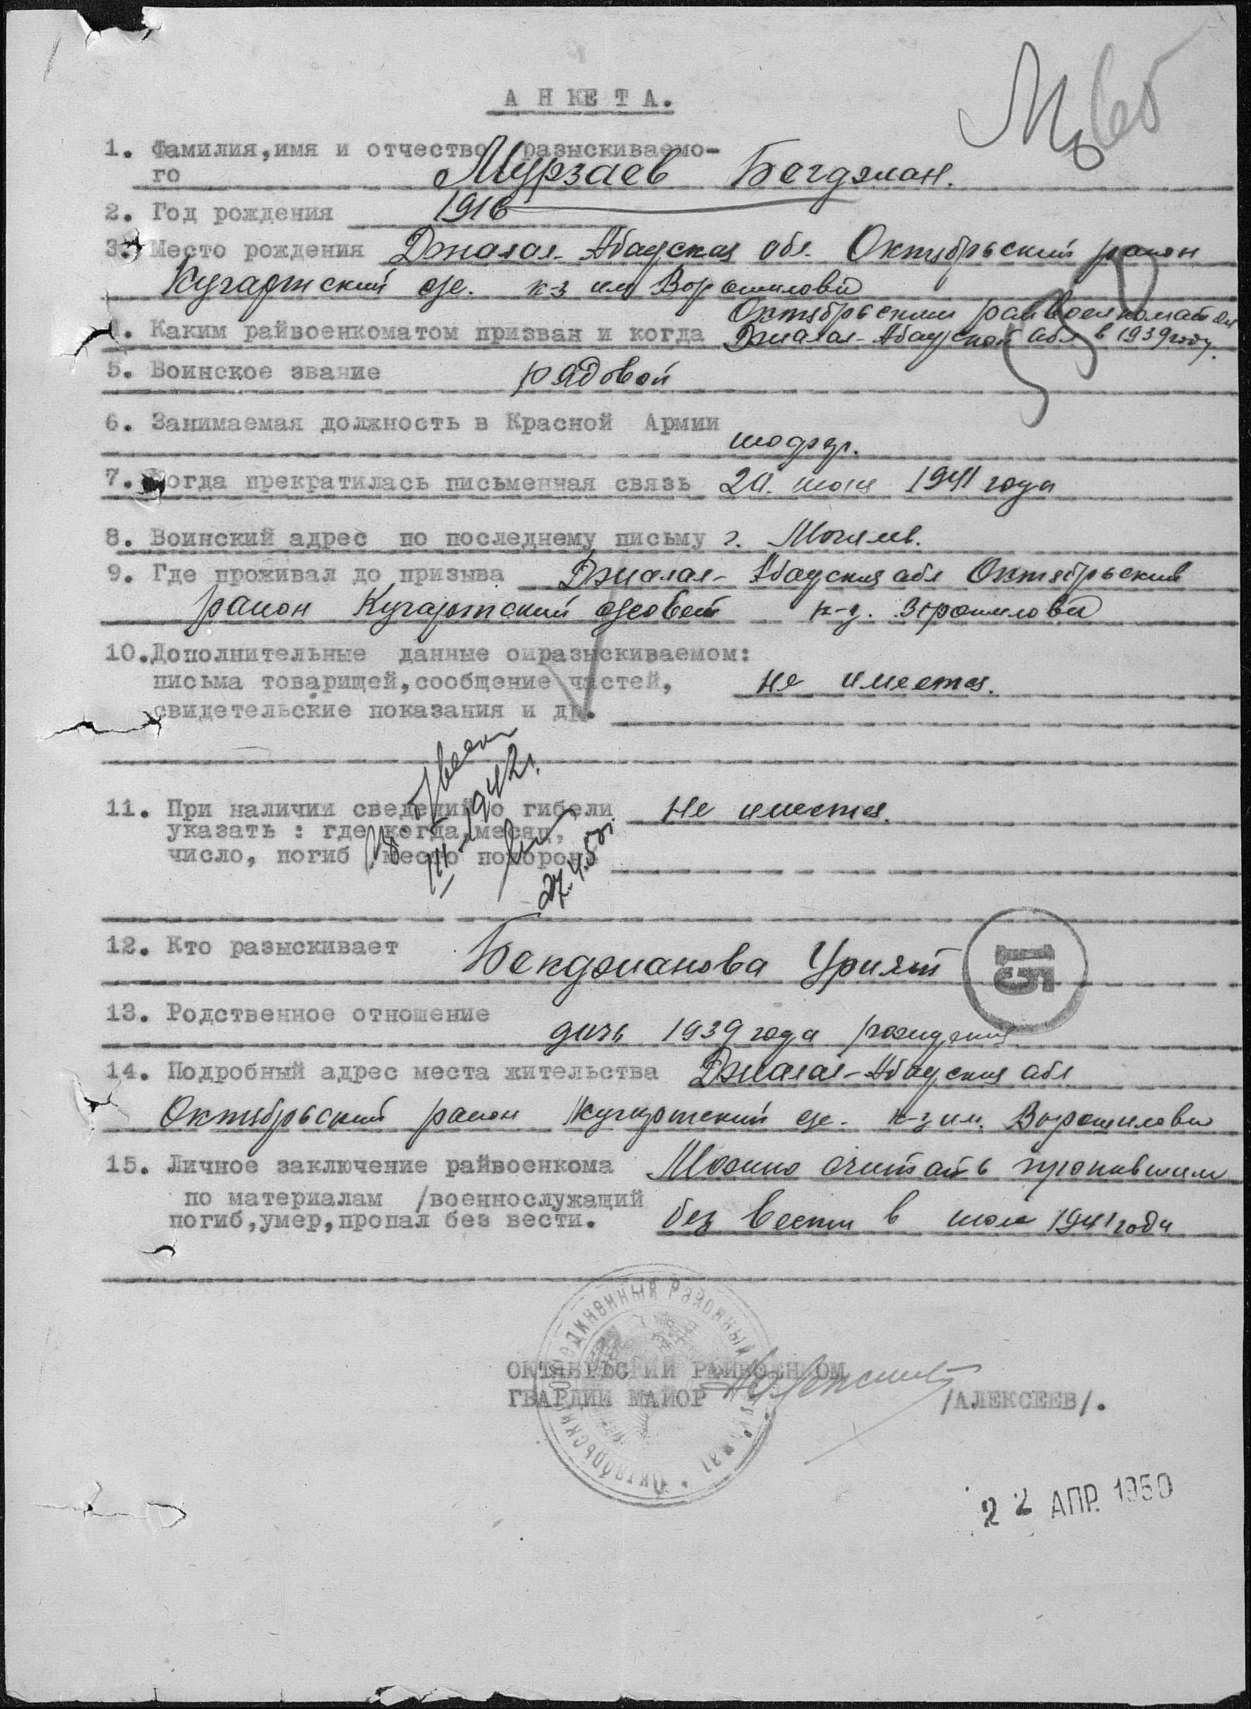 АНКЕТА.
1. Фамилия, имя и отчество разыскиваемо-
го Мурзаев Бегджан.
2. Год рождения 1916
3. Место рождения Джалал-Абадская обл. Октябрьский район
Кугартский с/с. к-з им Ворошилова
Октябрьским райвоенкоматом
4. Каким райвоенкоматом призван и когда Джалал-Абадской обл в 1939 году.
5. Воинское звание рядовой
6. Занимаемая должность в Красной Армии
шофер.
7. Когда прекратилась письменная связь 20. июня 1941 года
8. Воинский адрес по последнему письму г. Могилев.
9. Где проживал до призыва Джалал-Абадская обл Октябрьский
район Кугартский с/совет к-з. Ворошилова
10. Дополнительные данные о разыскиваемом:
письма товарищей, сообщение частей, не имеется.
свидетельские показания и др.
III-1942г.
11. При наличии сведений о гибели не имеется.
указать : где когда, месяц,
число, погиб место похорон
27.4.50г.
12. Кто разыскивает Бекджанова Урият
15
13. Родственное отношение
дочь 1939 года рождения
14. Подробный адрес места жительства Джалал-Абадская обл
Октябрьский район Кугартский с/с. к-з им. Ворошилова
15. Личное заключение райвоенкома Можно считать пропавшим
по материалам /военнослужащий
погиб, умер, пропал без вести. без вести в июле 1941 года
ОКТЯБРЬСКИЙ РАЙВОЕНКОМ
ГВАРДИИ МАЙОР /АЛЕКСЕЕВ/.
22 АПР. 1950